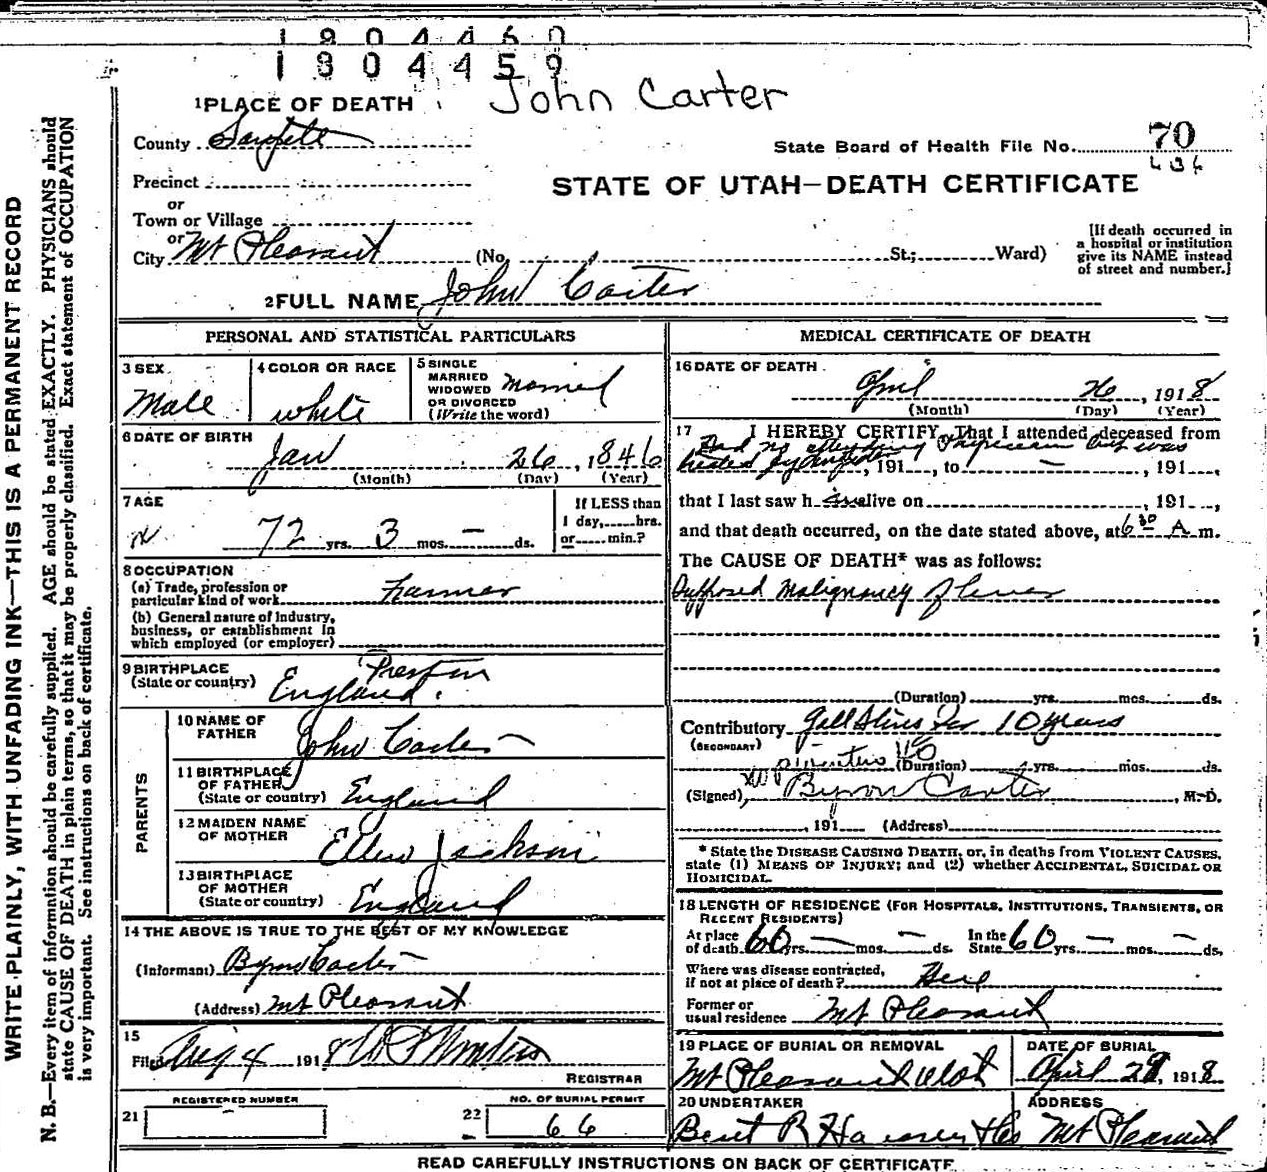 1804460
1804459
John Carter
1 PLACE OF DEATH
County Sanpete
State Board of Health File No. 70
Precinct
or
Town or Village
STATE OF UTAH—DEATH CERTIFICATE
or
City Mt Pleasant (No. St.; Ward)
[If death occurred in
a hospital or institution
give its NAME instead
of street and number.]
2 FULL NAME John Carter
PERSONAL AND STATISTICAL PARTICULARS
3 SEX
Male
4 COLOR OR RACE
white
5 SINGLE
MARRIED
WIDOWED
OR DIVORCED
(Write the word)
Married
6 DATE OF BIRTH
Jan 26, 1846
(Month) (Day) (Year)
7 AGE
72 yrs. 3 mos. — ds.
If LESS than
1 day, hrs.
or min.?
8 OCCUPATION
(a) Trade, profession or
particular kind of work Farmer
(b) General nature of industry,
business, or establishment in
which employed (or employer)
9 BIRTHPLACE
(State or country)
Preston
England.
PARENTS
10 NAME OF
FATHER
John Carter
11 BIRTHPLACE
OF FATHER
(State or country) England
12 MAIDEN NAME
OF MOTHER
Ellen Jackson
13 BIRTHPLACE
OF MOTHER
(State or country) England
14 THE ABOVE IS TRUE TO THE BEST OF MY KNOWLEDGE
(Informant) Byron Carter
(Address) Mt Pleasant
15
Filed Aug 4 1918
REGISTRAR
REGISTERED NUMBER
21
NO. OF BURIAL PERMIT
22
66
MEDICAL CERTIFICATE OF DEATH
16 DATE OF DEATH
April 26, 1918
(Month) (Day) (Year)
17 I HEREBY CERTIFY, That I attended deceased from
Had no attending Physician but was
treated by, 191, to —, 191,
that I last saw h alive on, 191,
and that death occurred, on the date stated above, at 6 30 A m.
The CAUSE OF DEATH* was as follows:
Supposed Malignancy of Liver
(Duration) yrs. mos. ds.
Contributory Gall Stones for 10 years
(SECONDARY)
(Duration) yrs. mos. ds.
(Signed) Byron Carter, M.D.
, 191 (Address)
* State the DISEASE CAUSING DEATH, or, in deaths from VIOLENT CAUSES,
state (1) MEANS OF INJURY; and (2) whether ACCIDENTAL, SUICIDAL OR
HOMICIDAL.
18 LENGTH OF RESIDENCE (FOR HOSPITALS, INSTITUTIONS, TRANSIENTS, OR
RECENT RESIDENTS)
At place
of death 60 yrs. — mos. — ds.
In the
State 60 yrs. — mos. — ds.
Where was disease contracted,
if not at place of death? Here
Former or
usual residence Mt Pleasant
19 PLACE OF BURIAL OR REMOVAL
Mt Pleasant Utah
DATE OF BURIAL
April 28, 1918
20 UNDERTAKER
Bent R Hansen
ADDRESS
Mt Pleasant
READ CAREFULLY INSTRUCTIONS ON BACK OF CERTIFICATE
WRITE PLAINLY, WITH UNFADING INK—THIS IS A PERMANENT RECORD
N. B.—Every item of information should be carefully supplied. AGE should be stated EXACTLY. PHYSICIANS should
state CAUSE OF DEATH in plain terms, so that it may be properly classified. Exact statement of OCCUPATION
is very important. See instructions on back of certificate.